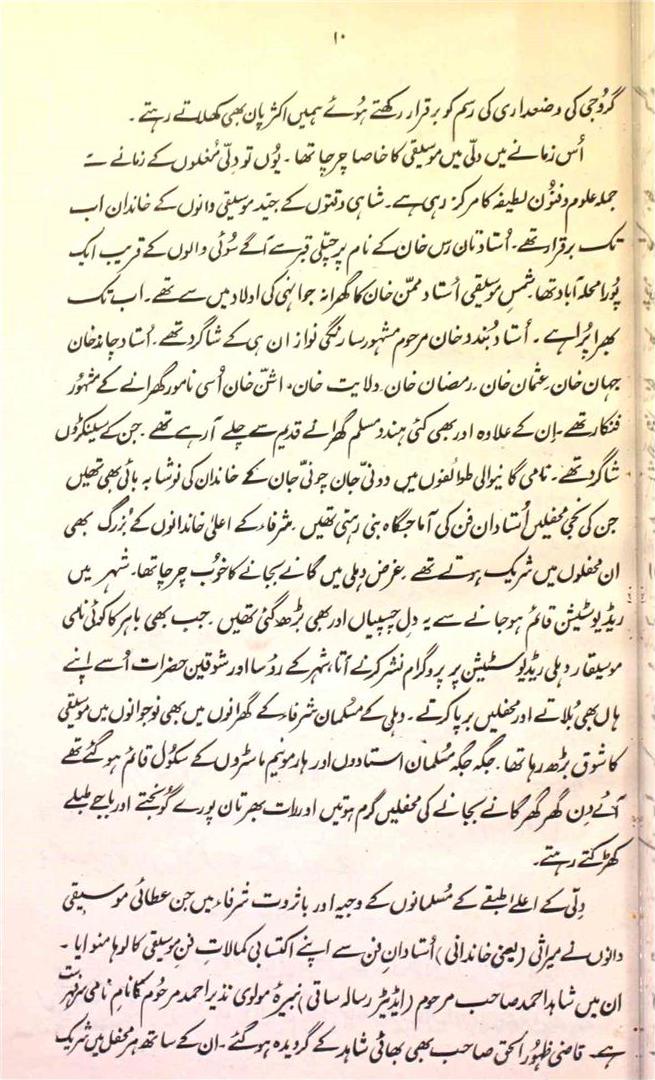 ۱۰
گروجی کی وضعداری کی رسم کو برقرار رکھتے ہوئے ہمیں اکثر پان بھی کھلاتے رہتے ۔
اُس زمانے میں دلّی میں موسیقی کا خاصا چرچا تھا ۔ یوں تو دلّی مغلوں کے زمانے سے
جملہ علوم و فنون لطیفہ کا مرکز رہی ہے ۔ شاہی وقتوں کے جیّد موسیقی دانوں کے خاندان اب
تک برقرار تھے ۔ اُستاد تان رس خان کے نام پر چتلی قبر سے آگے سوئی والوں کے قریب ایک
پُورا محلہ آباد تھا ۔ شمس موسیقی اُستاد ممّن خان کا گھرانہ جو انہی کی اولاد میں سے تھے ۔ اب تک
بھرا پُرا ہے ۔ اُستاد بُندو خان مرحوم مشہور سارنگی نواز ان ہی کے شاگرد تھے ۔ اُستاد چاند خان
جہان خان ، عثمان خان ، رمضان خان ، ولایت خان ، اشّن خان اُسی نامور گھرانے کے مشہور
فنکار تھے ۔ اِن کے علاوہ اور بھی کئی ہندو مسلم گھرانے قدیم سے چلے آ رہے تھے ۔ جن کے سینکڑوں
شاگرد تھے ۔ نامی گانیوالی طوائفوں میں دونّی جان چونّی جان کے خاندان کی نوشابہ بائی بھی تھیں
جن کی نجی محفلیں اُستادان فن کی آماجگاہ بنی رہتی تھیں ۔ شرفاء کے اعلیٰ خاندانوں کے بُزرگ بھی
ان محفلوں میں شریک ہوتے تھے ۔ غرض دہلی میں گانے بجانے کا خوب چرچا تھا ۔ شہر میں
ریڈیو سٹیشن قائم ہو جانے سے یہ دلچسپیاں اور بھی بڑھ گئی تھیں ۔ جب بھی باہر کا کوئی نامی
موسیقار دہلی ریڈیو سٹیشن پر پروگرام نشر کرنے آتا ، شہر کے روسا اور شوقین حضرات اُسے اپنے
ہاں بھی بُلاتے اور محفلیں برپا کرتے ۔ دہلی کے مُسلمان شرفاء کے گھرانوں میں بھی نوجوانوں میں موسیقی
کا شوق بڑھ رہا تھا ۔ جگہ جگہ مُسلمان استادوں اور ہارمونیم ماسٹروں کے سکول قائم ہو گئے تھے
آئے دن گھر گھر گانے بجانے کی محفلیں گرم ہوتیں اور رات بھر تان پورے گونجتے اور باجے طبلے
کھڑکتے رہتے ۔
دلّی کے اعلےٰ طبقے کے مُسلمانوں کے وجیہ اور با ثروت شرفاء میں جن عطائی موسیقی
دانوں نے میراثی (یعنی خاندانی) اُستادانِ فن سے اپنے اکتسابی کمالاتِ فنِ موسیقی کا لوہا منوایا ۔
ان میں شاہد احمد صاحب مرحوم (ایڈیٹر رسالہ ساقی) نبیرۂ مولوی نذیر احمد مرحوم کا نام نامی سرِفہرست
ہے ۔ قاضی ظہورُ الحق صاحب بھی بھائی شاہد کے گرویدہ ہو گئے ۔ ان کے ساتھ ہر محفل میں شریک